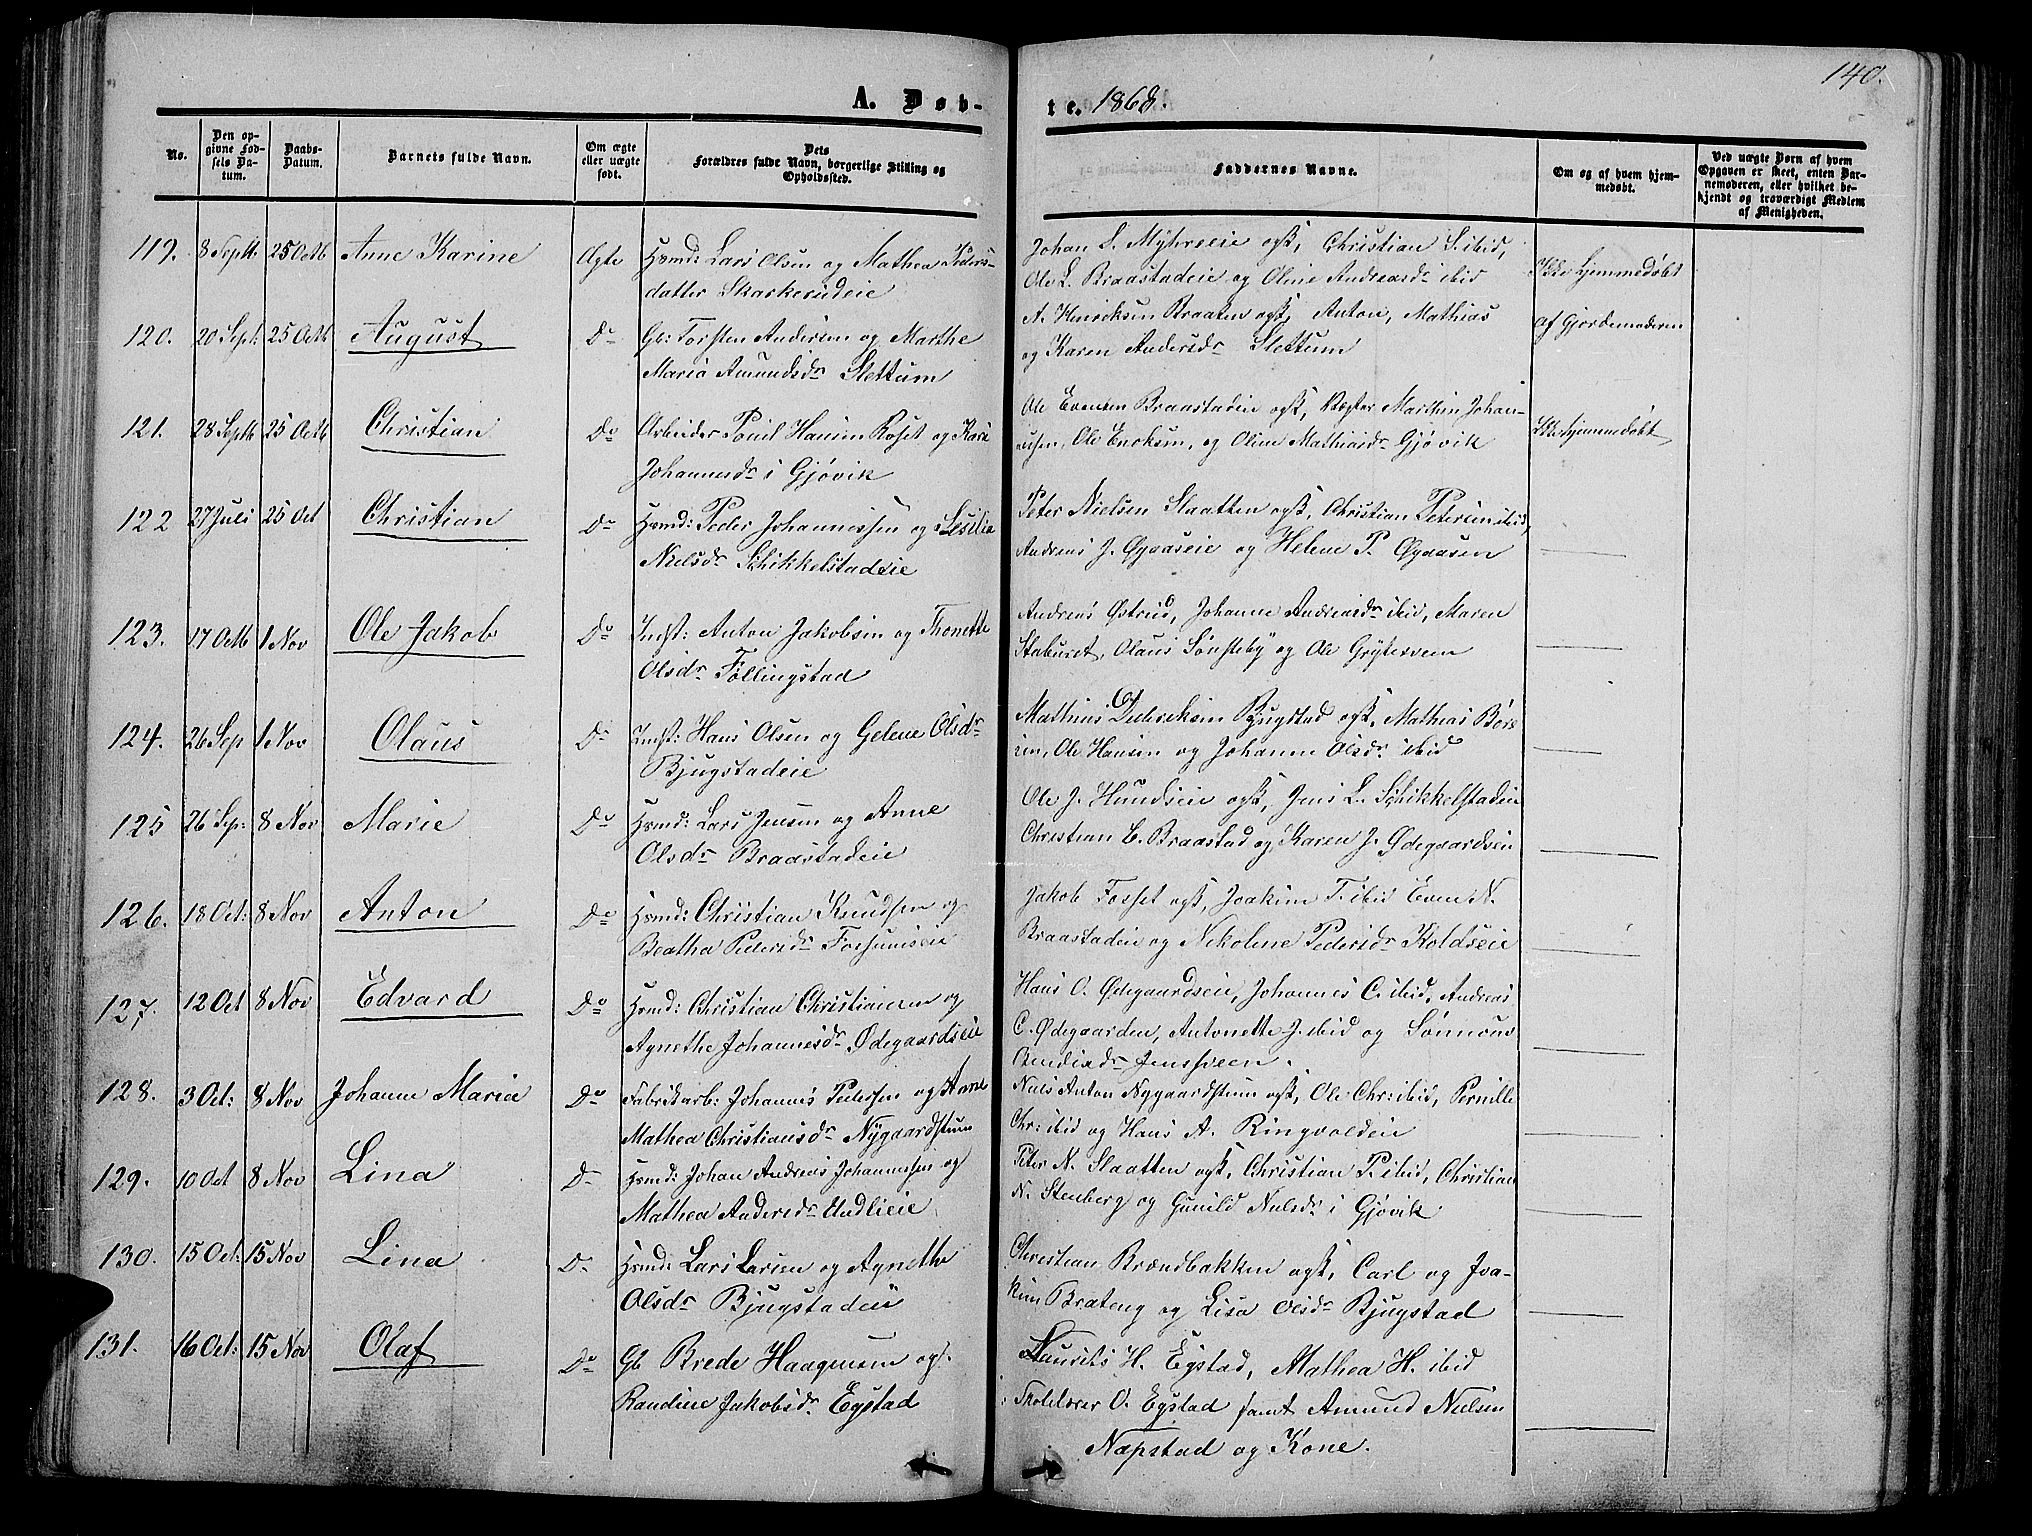 140.
A. Døb-
te. 1868.
No.
Den op-
givne Fød-
sels Da-
tum.
Daabs-
Datum.
Barnets fulde Navn.
Om ægte
eller uægte
født.
Dets
Forældres fulde Navn, borgerlige Stilling og
Opholdssted.
Faddernes Navne.
Om og af hvem hjem-
medøbt.
Ved uægte Børn af hvem
Opgaven er skeet, enten Bar-
nemoderen, eller hvilket be-
kjendt og troværdigt Medlem
af Menigheden.
119. 8 Septb 25 Octb Anne Karine Ægte Hsmd: Lars Olsen og Mathea Peders-
datter Skarkerudeie
Johan L. Myhrseie ogsk, Christian L. ibid,
Ole L. Braastadeie og Oline Andreasdr ibid
Ikke hjemmedøbt
120. 20 Sept: 25 Octb August Do Gb: Torsten Andersen og Marthe
Maria Amundsdr Slettum
A. Henriksen Braaten ogsk, Anton, Mathias
og Karen Andersdr Slettum
af Gjordemoderen
121. 28 Septb 25 Octb Christian Do Arbeider Poul Hansen Roset og Kari
Johannesdr i Gjøvik
Ole Evensen Braastadeie ogsk, Vægter Marthin Johan-
nesen, Ole Eriksen, og Oline Mathiasdr Gjøvik
Ikke hjemmedøbt
122 27 Juli 25 Oct Christian Do Hsmd: Peder Johannessen og Lesilie
Nielsdr Schikkelstadeie
Peter Nielsen Slaatten ogsk, Christian Petersen ibid,
Andreas J. Øyaaseie og Helene P. Øyaasen
123. 17 Octb 1 Nov Ole Jakob Do Indst: Anton Jakobsen og Thonette
Olsdr Føllingstad
Andreas Østrud, Johanne Andreasdr ibid, Maren
Staburet, Olaus Sønsteby og Ole Gryteseen
124. 26 Sep 1 Nov Olaus Do Indst: Hans Olsen og Gelene Olsdr
Bjugstadeie
Mathias Dideriksen Bjugstad ogsk, Mathias Bør-
sen, Ole Hansen og Johanne Olsdr ibid
125 26 Sep: 8 Nov Marie Do Hsmd: Lars Jensen og Anne
Olsdr Braastadeie
Ole J. Hundseie ogsk, Jens L. Schikkelstadeie
Christian E. Braastad og Karen J. Ødegaardseie
126. 18 Oct: 8 Nov Anton Do Hsmd: Christian Knudsen og
Beathe Pedersdr Forsumseie
Jakob Fosset ogsk, Joakim T. ibid Even N.
Braastadeie og Nekoline Pedersdr Koldseie
127. 12 Oct 8 Nov Edvard Do Hsmd: Christian Christiansen og
Agnethe Johannesdr Ødegaardseie
Hans O. Ødegaardseie, Johannes C. ibid, Andreas
C. Ødegaarden, Antonette J. ibid og
128. 3 Oct: 8 Nov Johanne Maria Do Fabrikarb: Johannes Pedersen og Anne
Mathea Christiansdr Nygaardstuen
Niels Anton Nygaardstuen ogsk, Ole Chr: ibid, Pernille
Chr: ibid og Hans A. Ringvoldeie
129. 10 Oct 8 Nov Lina Do Hsmd: Johan Andreas Johannesen og
Mathea Andersdr Undlieie
Peter N. Slaatten ogsk, Christian P. ibid, Christian
N. Stenberg og Gunild Nielsdr i Gjøvik
130. 15 Oct: 15 Nov Lina Do Hsmd: Lars Larsen og Agnethe
Olsdr Bjugstadeie
Christian Brændbakken ogsk, Carl og Joa-
kim Brateng og Lisa Olsdr Bjugstad
131. 16 Oct: 15 Nov Olaf Do Gb Brede Haagensen og
Randine Jakobsdr Egstad
Laurits H. Egstad, Mathea H. ibid
O. Egstad samt Amund Nielsen
Næpstad og Kone.